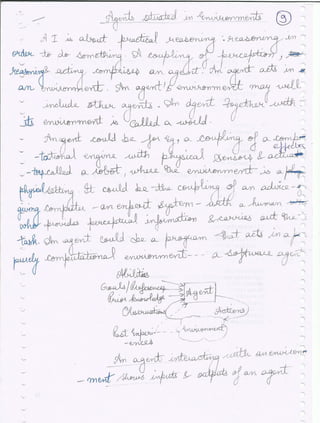 Agents situated in Environments 9
A I is about practical reasoning : reasoning in
order to do something. A coupling of perception,
reasoning & acting comprises an agent. An agent acts in
an environment. An agent's environment may well
include other agents. An agent together with
its environment is called a world.
An agent could be for eg, a coupling of a comp-
-tational engine with physical sensors & effectors
called a robot, where the environment is a
physical setting. It could be the coupling of an advice-
giving computer - an expert system - with a human
who provides perceptual information & carries out the
task. An agent could be a program that acts in a
purely computational environment --- a software agent
Abilities
Goals/Preferences
Prior knowledge
Agent
Observations
Actions
Past Experi-
-ences
Environment
An agent interacting with an environ-
-ment shows inputs & outputs of an agent